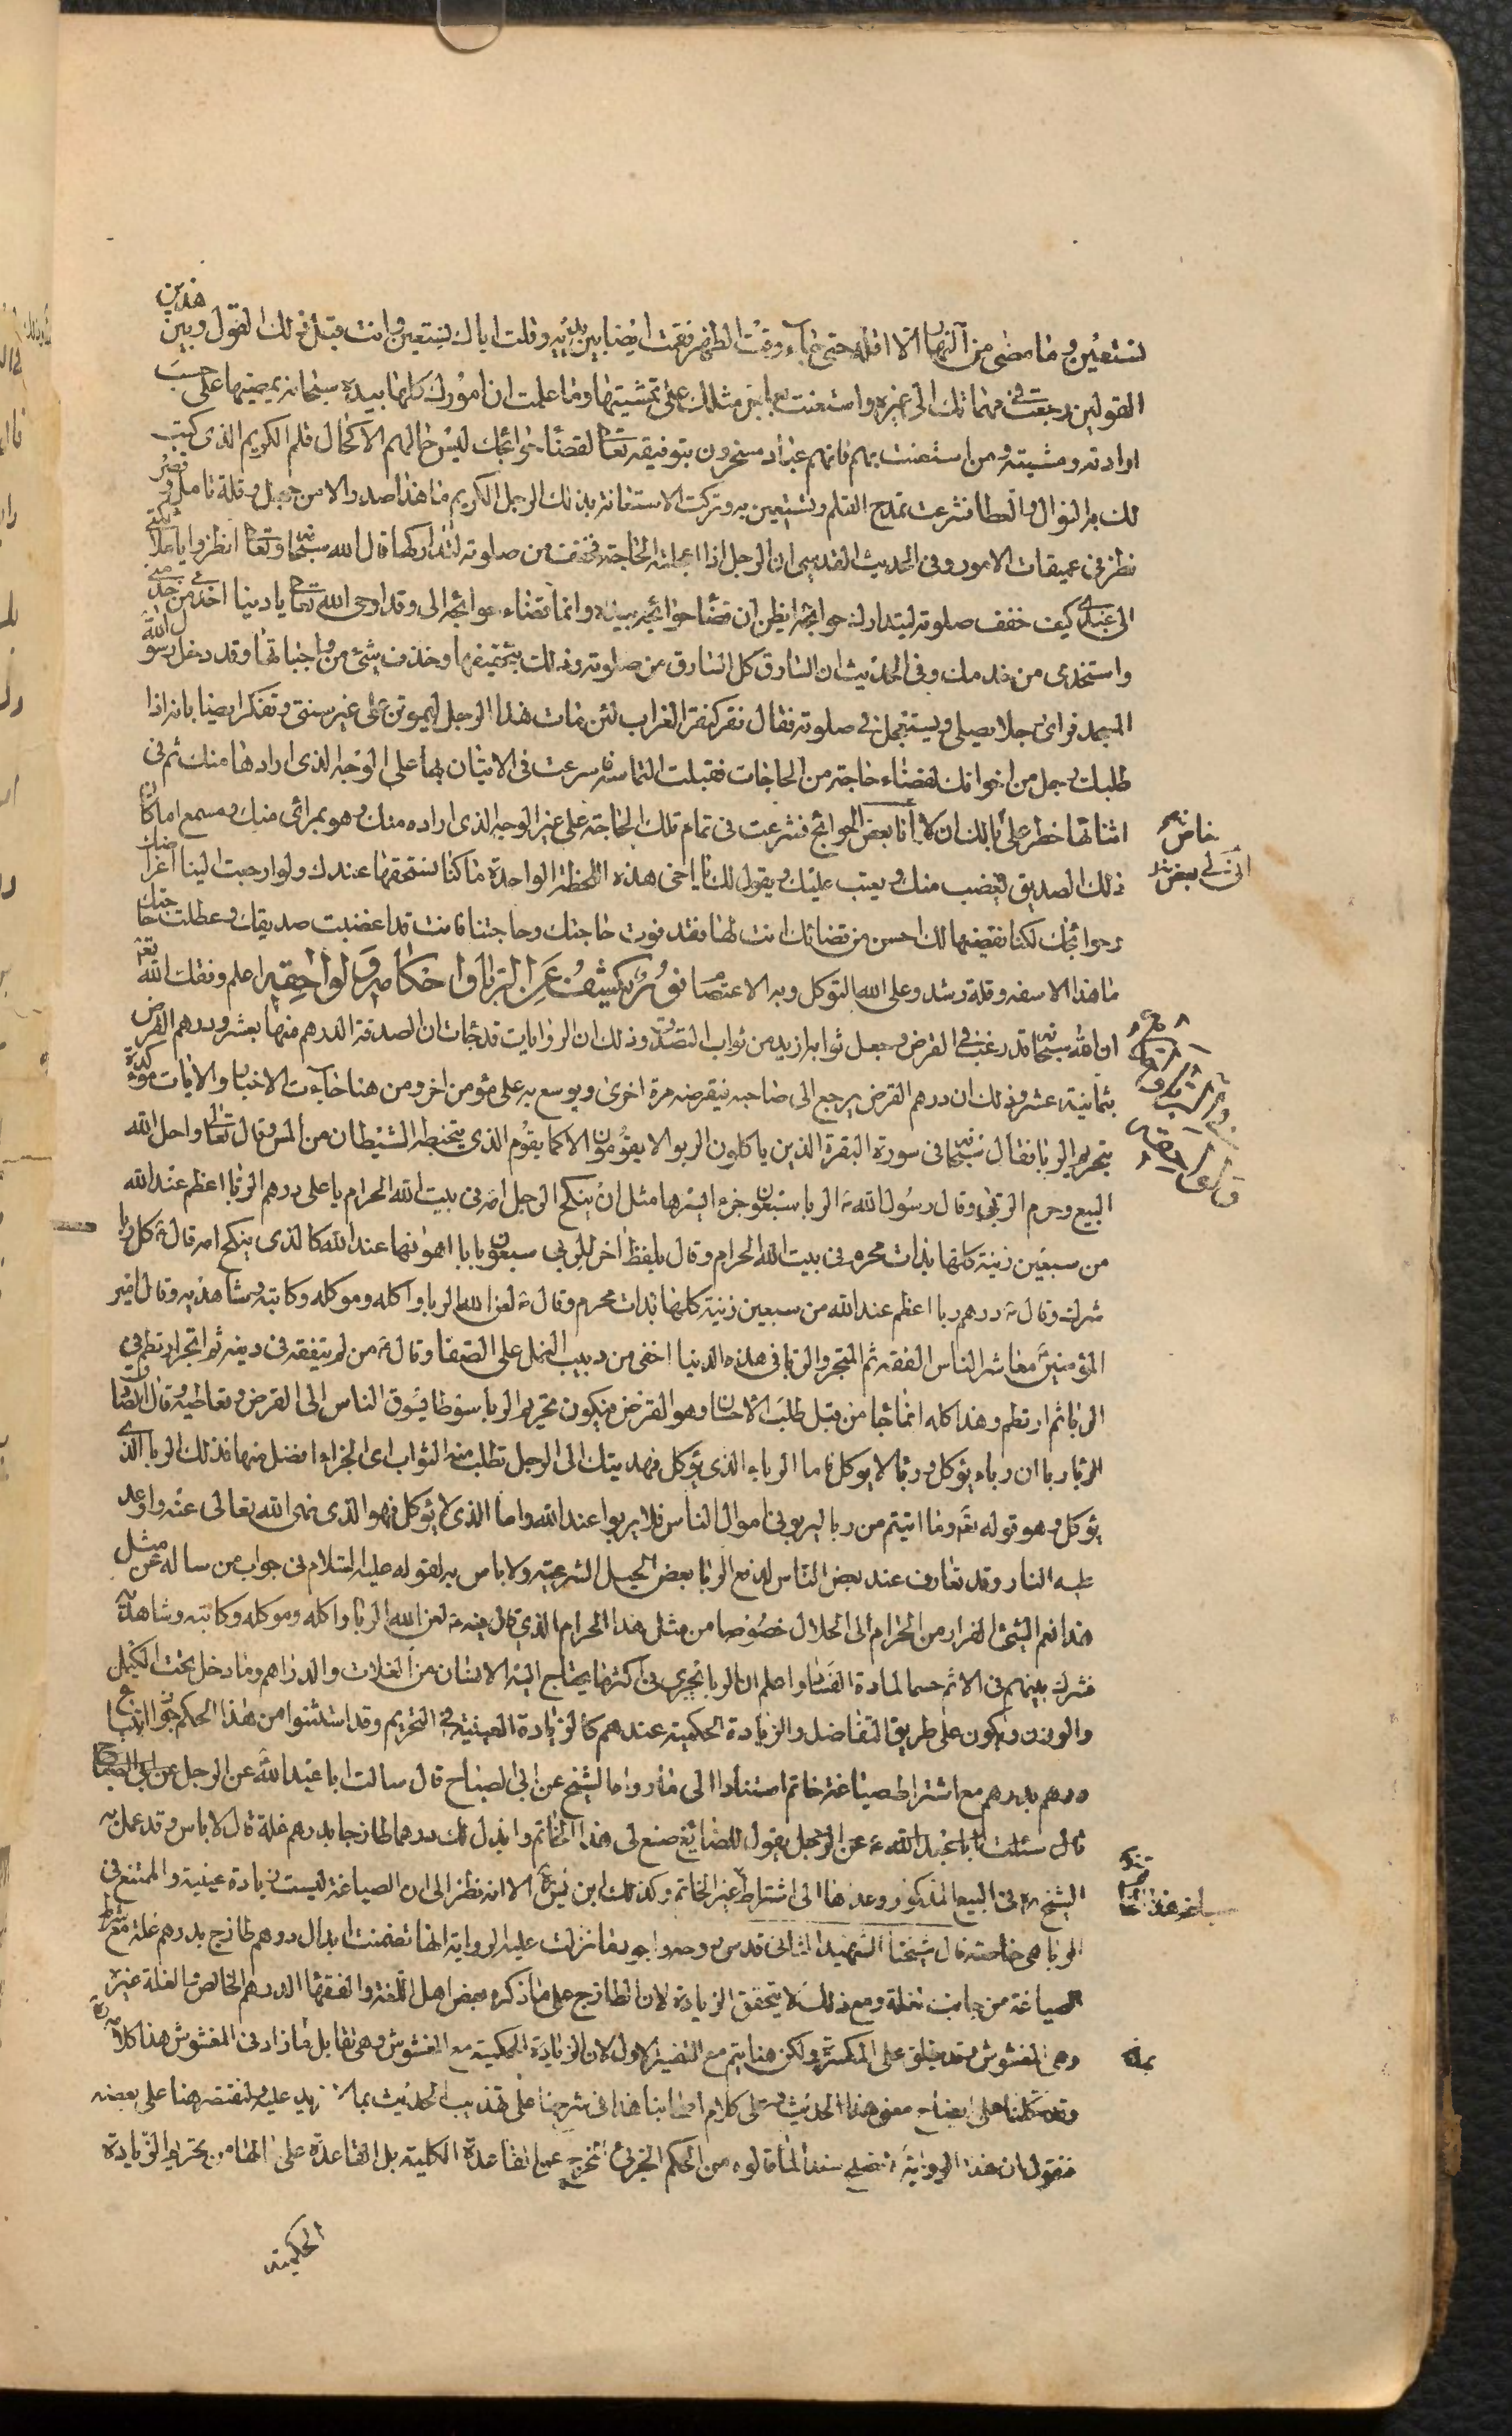 نستعين وما مضى من النهار الا اقله حتى جاء وقت الظهر فقمت ايضا بين يديه وقلت اياك نستعين وانت قبل ذلك القول وبين هذين
القولين رجعت في مهماتك الى غيره واستعنت بعاجز مثلك على تمشيتها وما علمت ان امورك كلها بيده سبحانه يمضيها على حسب
ارادته ومشيته ومن استعنت بهم فانهم عباد مسخرون بتوفيقه تعالى لقضاء حوائجك ليس حالهم الا كحال قلم الكريم الذي كتب
لك به النوال والعطا فشرعت تمدح القلم وتستعين به وتركت الاستعانة بذلك الرجل الكريم ما هذا صدر الا من جهل وقلة تامل وقصر
نظر في عميقات الامور وفي الحديث القدسي ان الرجل اذا اعجلته الحاجة فخفف من صلوته لتداركها قال الله سبحانه وتعالى انظروا يا ملائكتي
الى عبدي كيف خفف صلوته ليتدارك حوائجه ايظن ان قضاء حوائجه بيده وانما قضاء حوائجه الى وقد اوحى الله تعالى يا دنيا اخدمي من خدمني
واستخدمي من خدمك وفي الحديث ان السارق كل السارق من سرق من صلوته وذلك بتخفيفها وحذف شيء من واجباتها وقد دخل رسول الله
المسجد فراى رجلا يصلي ويستعجل في صلوته فقال نقر كنقر الغراب لئن مات هذا الرجل ليموتن على غير سنتي وتفكر ايضا بانه اذا
طلبك رجل من اخوانك لقضاء حاجة من الحاجات فقبلت التماسه وشرعت في الاتيان بها على الوجه الذي ارادها منك ثم في
اثنائها خطر على بالك ان لك انا بعض الحوائج فشرعت في تمام تلك الحاجة على غير الوجه الذي اراده منك وهو بمرأى منك ومسمع اما كان
ذلك الصديق يغضب منك ويعيب عليك ويقول لك يا اخي هذه اللحظة الواحدة ما كنا نستحقها عندك ولو ارجعت الينا اغراضك
وحوائجك لكنا نقضيها لك احسن من قضائك انت لها فقد فوت حاجتك وحاجتنا فانت قد اغضبت صديقك وعطلت حاجتك
ما هذا الا سفه وقلة رشد وعلى الله التوكل وبه الاعتصام نور يكشف عن الربا واحكامه ولواحقه اعلم وفقك الله تعالى
ان الله سبحانه قد رغب في القرض وجعل ثوابه ازيد من ثواب التصدق وذلك ان الروايات قد جاءت ان الصدقة الدرهم منها بعشر ودرهم القرض
بثمانية عشر وذلك ان درهم القرض يرجع الى صاحبه فيقرضه مرة اخرى ويوسع به على مؤمن اخر ومن هنا جاءت الاخبار والايات مؤكدة
بتحريم الربا فقال سبحانه في سورة البقرة الذين ياكلون الربو الا يقومون الا كما يقوم الذي يتخبطه الشيطان من المس وقال تعالى واحل الله
البيع وحرم الربوا وقال رسول الله الربا سبعون جزء ايسرها مثل ان ينكح الرجل امه في بيت الله الحرام يا علي درهم الربا اعظم عند الله
من سبعين زنية كلها بذات محرم في بيت الله الحرام وقال بلفظ اخر للربي سبعون بابا اهونها عند الله كالذي ينكح امه قال كل ربا
شرك وقال درهم ربا اعظم عند الله من سبعين زنية كلها بذات محرم وقال لعن الله الربا واكله وموكله وكاتبه وشاهديه وقال امير
المؤمنين معاشر الناس الفقه ثم المتجر والربا في هذه الدنيا اخفى من دبيب النمل على الصفا وقال من لم يتفقه في دينه ثم اتجر ارتطم في
الربا ثم ارتطم وهذا كله انما جا من قبل طلب الاحسان وهو القرض فيكون تحريم الربا سوطا يسوق الناس الى القرض وتعاطيه وقال الصادق
الربا ربا ان رباء يؤكل وربا لا يوكل فاما الرباء الذي يؤكل فهديتك الى الرجل تطلب منه الثواب اي الجزاء افضل منها فذلك الربا الذي
يؤكل وهو قوله تعالى وما اتيتم من ربا ليربو في اموال الناس فلا يربوا عند الله واما الذي لا يؤكل فهو الذي نهى الله تعالى عنه واوعد
عليه النار وقد تعارف عند بعض الناس لدفع الربا بعض الحيل الشرعية ولا باس به لقوله عليه السلام في جواب من ساله عن مثل
هذا نعم الشيء الفرار من الحرام الى الحلال خصوصا من مثل هذا الحرام الذي قال فيه لعن الله الربا واكله وموكله وكاتبه وشاهديه
فشرك بينهم في الاثم حسما لمادة الفساد واعلم ان الربا يجري في اكثر ما يحتاج اليه الانسان من الغلات والدراهم وما دخل تحت الكيل
والوزن ويكون على طريق التفاضل والزيادة الحكمية عندهم كالزيادة العينية في التحريم وقد استثنوا من هذا الحكم جواز ابتياع
درهم بدرهم مع اشتراط صياغة خاتم استنادا الى ما رواه الشيخ عن ابي الصباح قال سالت ابا عبد الله عن الرجل عن ابي الصباح
قال سئلت ابا عبد الله عن الرجل يقول للصائغ صنع لي هذا الخاتم وابذل لك درهما طازجا بدرهم غلة قال لا باس وقد عمل به
الشيخ في البيع المذكور وعداها الى اشتراط غير الخاتم وكذلك ابن ادريس الا انه نظر الى ان الصياغة ليست زيادة عينية والممتنع في
الربا هي خاصة قال شيخنا الشهيد الثاني قدس روحه واجود ما نزلت عليه الرواية انها تضمنت ابدال درهم طازج بدرهم غلة مع شرط
الصياغة من جانب الغلة ومع ذلك لا يتحقق الزيادة لان الطازج على ما ذكره بعض اهل اللغة والفقهاء الدرهم الخالص والغلة غيره
وهي المغشوش وقد يطلق على المكسر ولكن هنا يتم مع التفسير الاول لان الزيادة الحكمية مع المغشوش وهي تقابل ما زاد في المغشوش هذا كلامه
وقد تكلمنا على ايضاح معنى هذا الحديث وعلى كلام اصحابنا هذا في شرحنا على تهذيب الحديث بما لا مزيد عليه ولنقتصر هنا على بعضه
فنقول ان هذه الرواية تصلح سندا لما قالوه من الحكم الجزئي المخرج عن القاعدة الكلية بل القاعدة على حالها من تحريم الزيادة
الحكمية